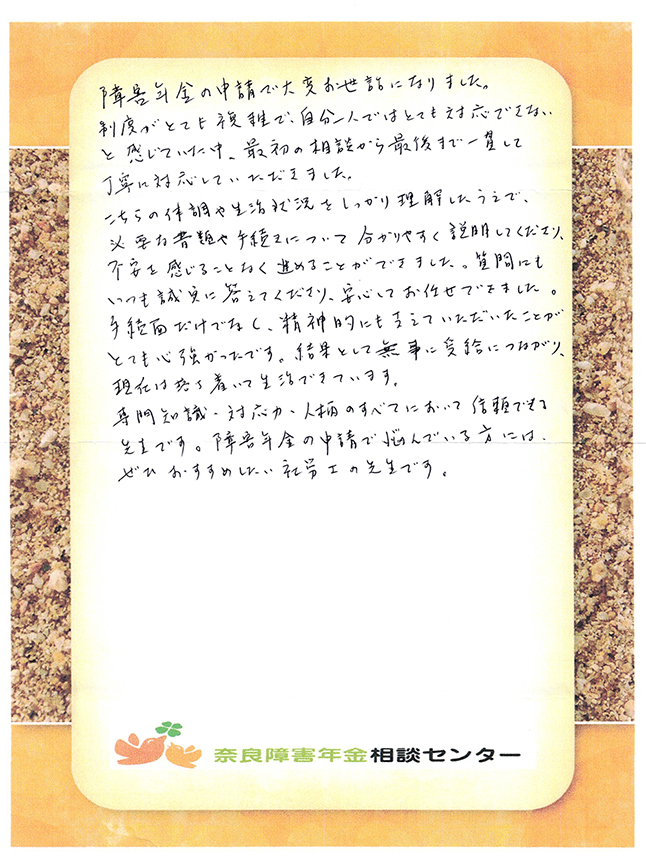 障害年金の申請で大変お世話になりました。
制度がとても複雑で、自分一人ではとても対応できない
と感じていた中、最初の相談から最後まで一貫して
丁寧に対応していただきました。
こちらの体調や生活状況をしっかり理解したうえで、
必要な書類や手続きについて分かりやすく説明してくださり、
不安を感じることなく進めることができました。質問にも
いつも誠実に答えてくださり、安心してお任せできました。
手続面だけでなく、精神的にも支えていただいたことが
とても心強かったです。結果として無事に受給につながり、
現在は落ち着いて生活できています。
専門知識・対応力・人柄のすべてにおいて信頼できる
先生です。障害年金の申請で悩んでいる方には、
ぜひおすすめしたい社労士の先生です。
奈良障害年金相談センター